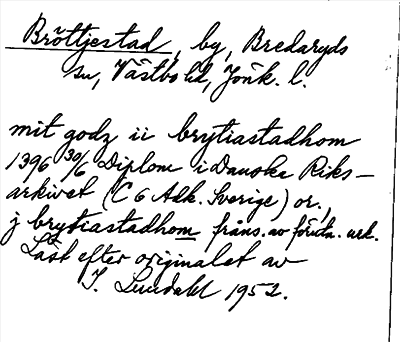 Bröttjestad, by, Bredaryds
sn, Västbo hd, Jönk. l.
mit godz ii brytiastadhom
1396 30/6 Diplom i Danska Riks-
arkivet (C 6 Adk. Sverige) or.,
j brytiastadhom på rs. av företa. urk.
Läst efter originalet av
I. Lundahl 1952.